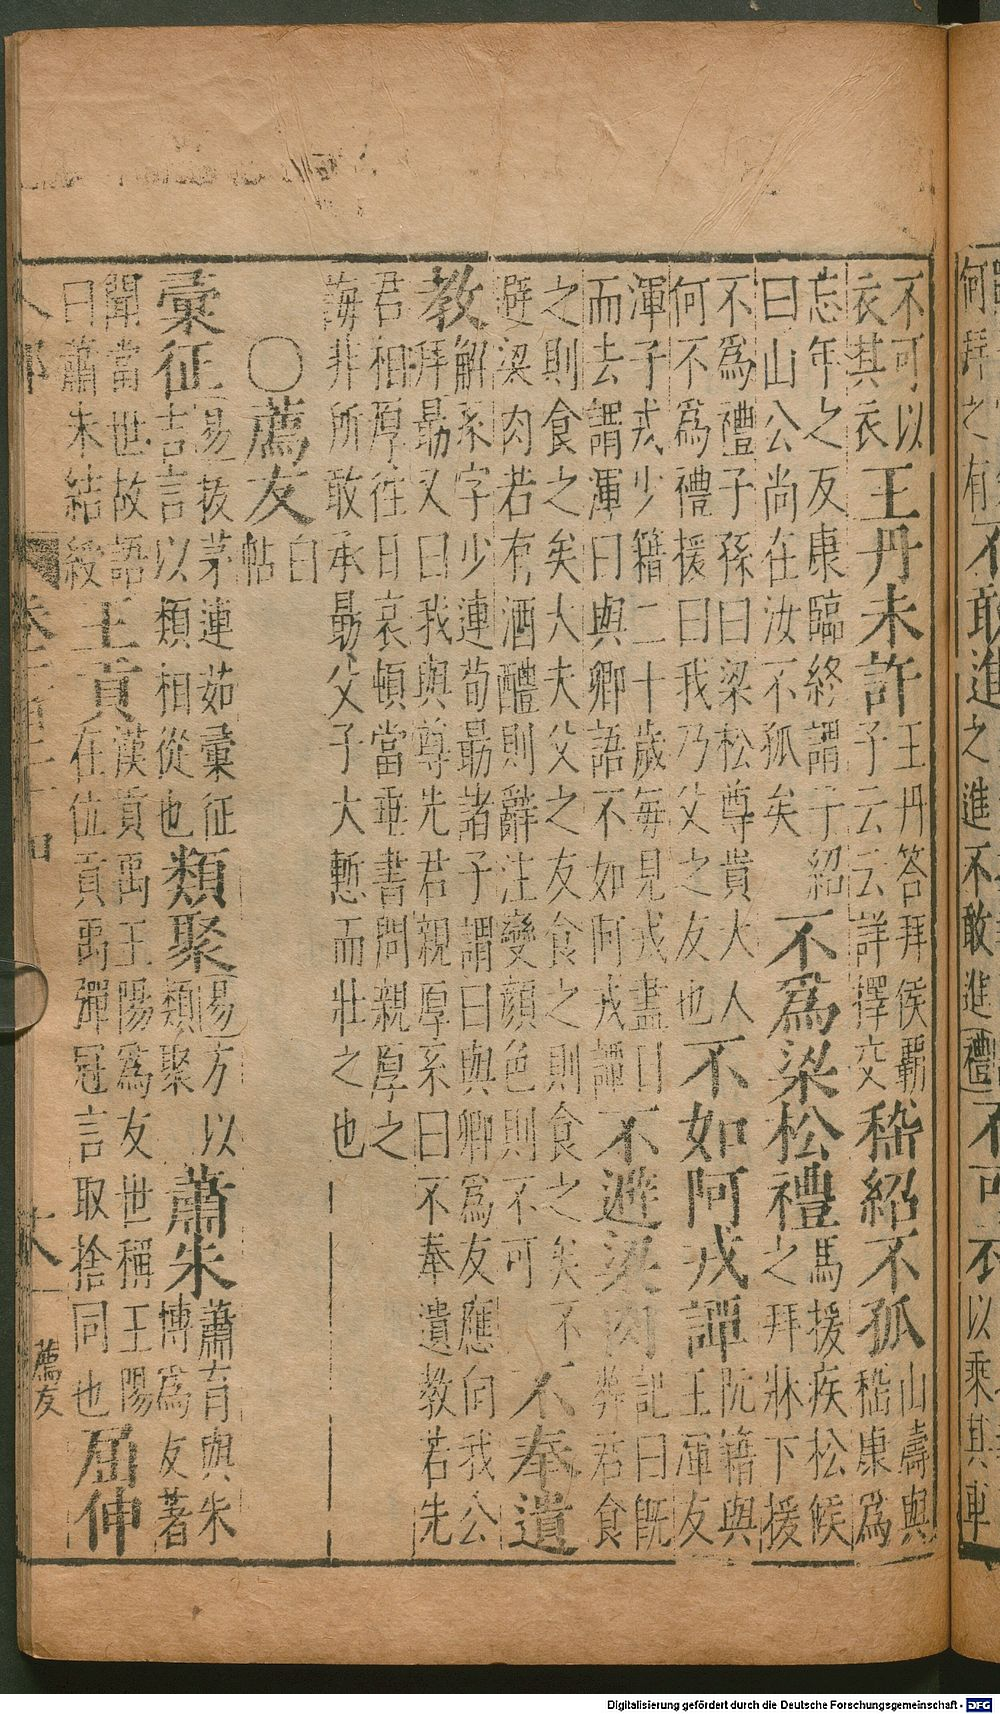 何拜之有不敢進之進不敢進禮不可衣以乘其車
不可以
衣其衣
王丹未許
王丹答拜侯覇
子云云詳擇交
嵇紹不孤
山濤與
嵇康爲
忘年之友康臨終謂子紹
曰山公尚在汝不孤矣
不爲梁松禮
馬援疾松候
之拜牀下援
不爲禮子孫曰梁松尊貴大人
何不爲禮援曰我乃父之友也
不如阿戎譚
阮籍與
王渾友
渾子戎少籍二十歲每見戎盡日
而去謂渾曰與卿語不如阿戎譚
不避梁肉
記曰既
葬君食
之則食之矣大夫父之友食之則食之矣不
避梁肉若有酒醴則辭注變顔色則不可
不奉遺
教
解系字少連荀勗諸子謂曰與卿爲友應向我公
拜勗又曰我與尊先君親厚系曰不奉遺教若先
君相厚往日哀頓當垂書問親厚之
誨非所敢承勗父子大慙而壯之也
○薦友
白
帖
彙征
易拔茅連茹彙征
吉言以類相從也
類聚
易方以
類聚
蕭朱
蕭育與朱
博爲友著
聞當世故語
曰蕭朱結綬
王貢
漢貢禹王陽爲友世稱王陽
在位貢禹彈冠言取捨同也
屈伸
薦友
Digitalisierung gefördert durch die Deutsche Forschungsgemeinschaft - DFG